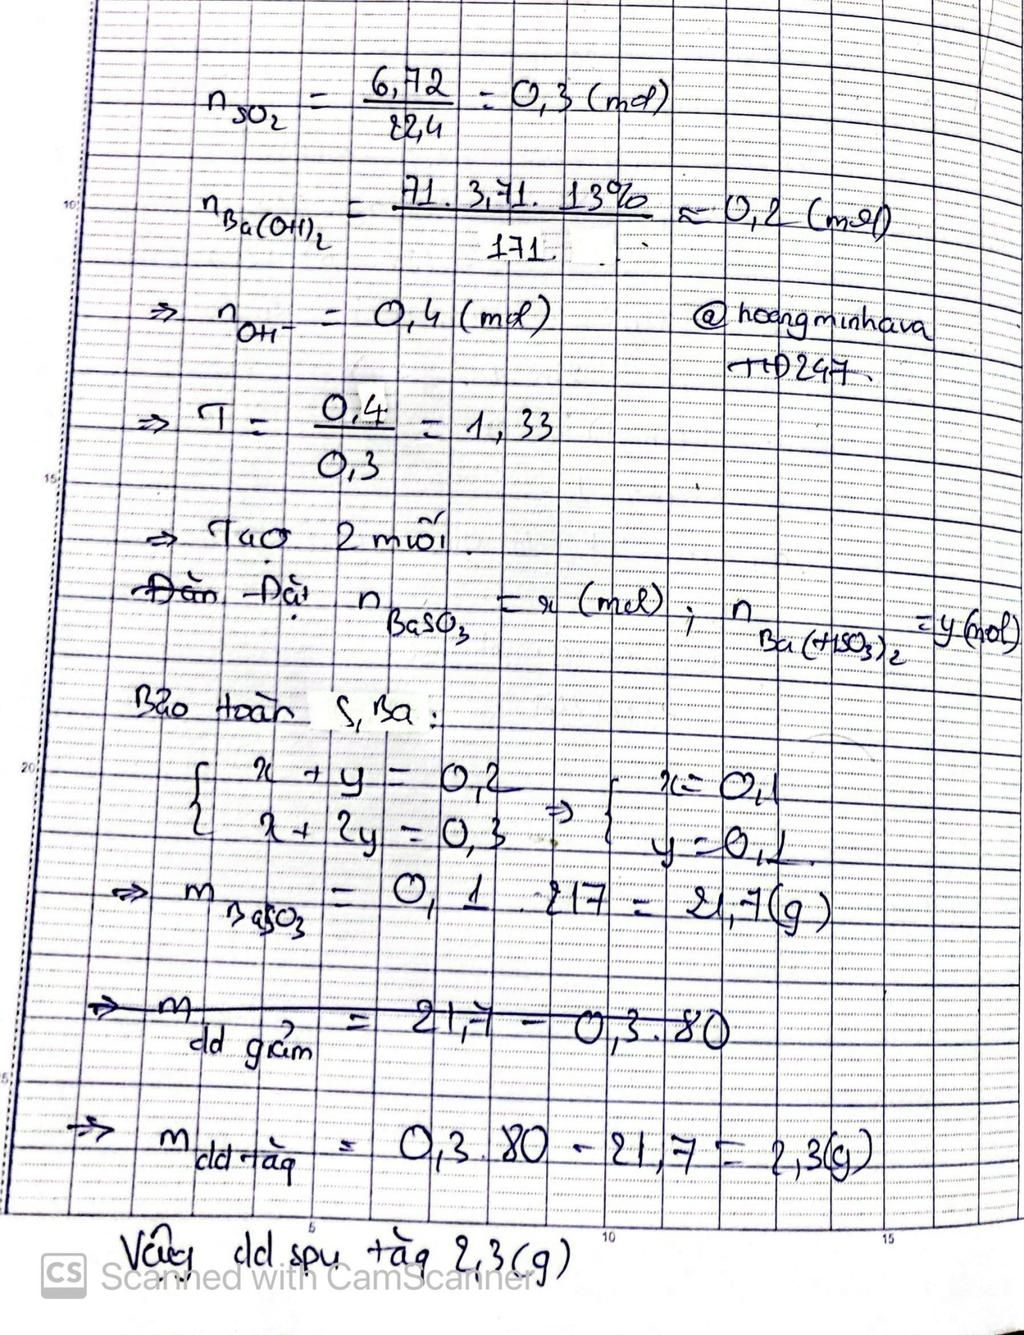 n SO2 = 6,72 / 22,4 = 0,3 (mol)
n Ba(OH)2 = 71. 3,71. 13% / 171 ≈ 0,2 (mol)
=> n OH- = 0,4 (mol) @hoangminhava
HĐ247
=> T = 0,4 / 0,3 = 1,33
=> Tạo 2 muối.
Đặt n BaSO3 = x (mol) ; n Ba(HSO3)2 = y (mol)
Bảo toàn S, Ba:
{ x + y = 0,2 => { x = 0,1
{ x + 2y = 0,3 { y = 0,1
=> m BaSO3 = 0,1 . 217 = 21,7 (g)
=> m dd giảm = 21,7 - 0,3.80
=> m dd tăg = 0,3.80 - 21,7 = 2,3 (g)
Vậy dd spư tăg 2,3 (g)
CS Scanned with CamScanner